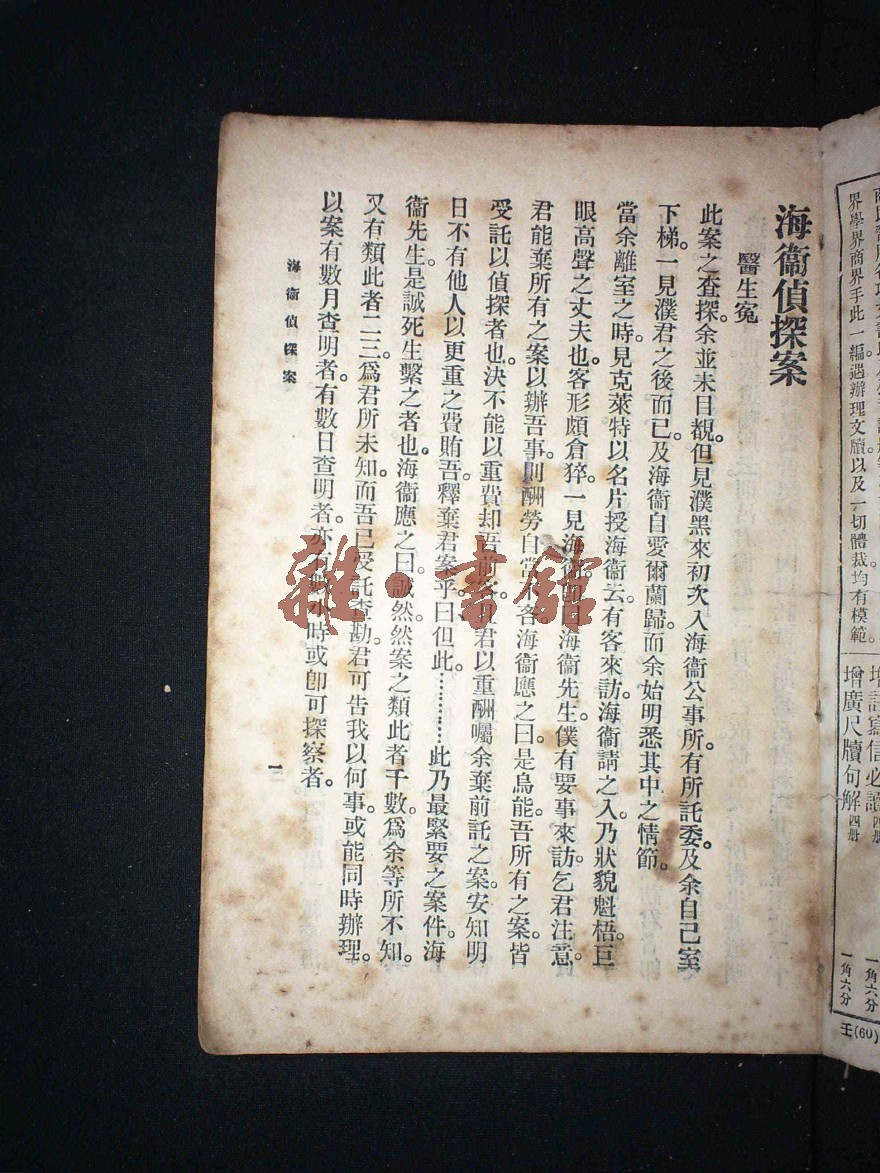 界學界商界手此一編遇辦理文牘以及一切體裁均有模範。
增廣尺牘句解 四册
一角六分
一角六分
王(60)
海衞偵探案
醫生冤
此案之查探。余並未目覩。但見濮黑來初次入海衞公事所。有所託委。及余自己室
下梯。一見濮君之後而已。及海衞自愛爾蘭歸。而余始明悉其中之情節。
當余離室之時。見克萊特以名片授海衞云。有客來訪。海衞請之入。乃狀貌魁梧。巨
眼高聲之丈夫也。客形頗倉猝。一見海衞。曰海衞先生。僕有要事來訪。乞君注意。
君能棄所有之案以辦吾事。則酬勞自當。客。海衞應之曰。是烏能。吾所有之案。皆
受託以偵探者也。決不能以重費却吾前客。君以重酬囑余棄前託之案。安知明
日不有他人以更重之費賄吾釋棄君案乎。曰但此…………此乃最緊要之案件。海
衞先生。是誠死生繫之者也。海衞應之曰。誠然。然案之類此者千數。爲余等所不知。
又有類此者二三。爲君所未知。而吾已受託查勘。君可告我以何事。或能同時辦理。
以案有數月查明者。有數日查明者。亦有數小時或卽可探察者。
海衞偵探案
一
雜·書館